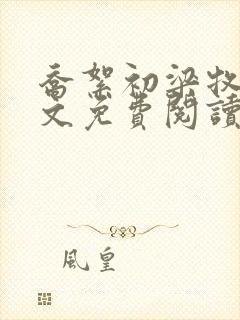 喬絮初梁牧
文免費閱讀
風皇